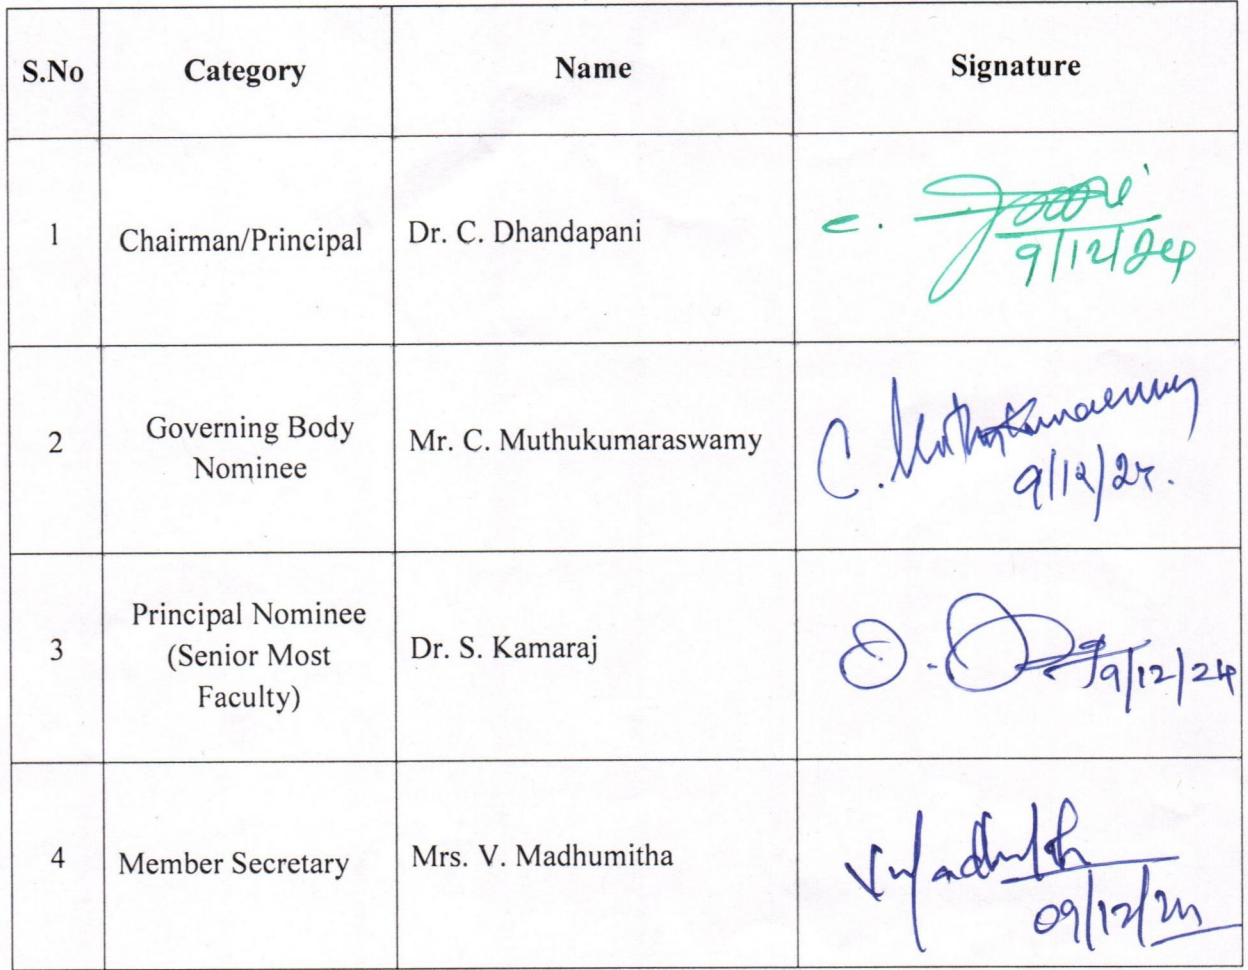 S.No Category Name Signature
1 Chairman/Principal Dr. C. Dhandapani C.
9/12/24
2 Governing Body
Nominee Mr. C. Muthukumaraswamy C. Muthukumaraswamy
9/12/24.
3 Principal Nominee
(Senior Most
Faculty) Dr. S. Kamaraj
9/12/24
4 Member Secretary Mrs. V. Madhumitha V. Madhumitha
09/12/24